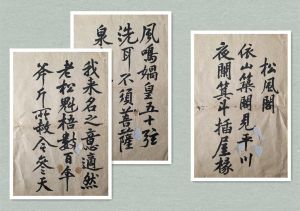 松風閣
依山築閣見平川
夜闌箕斗插屋椽
風鳴媧皇五十弦
洗耳不須菩薩
泉
我來名之意適然
老松魁梧數百年
斧斤所赦令參天